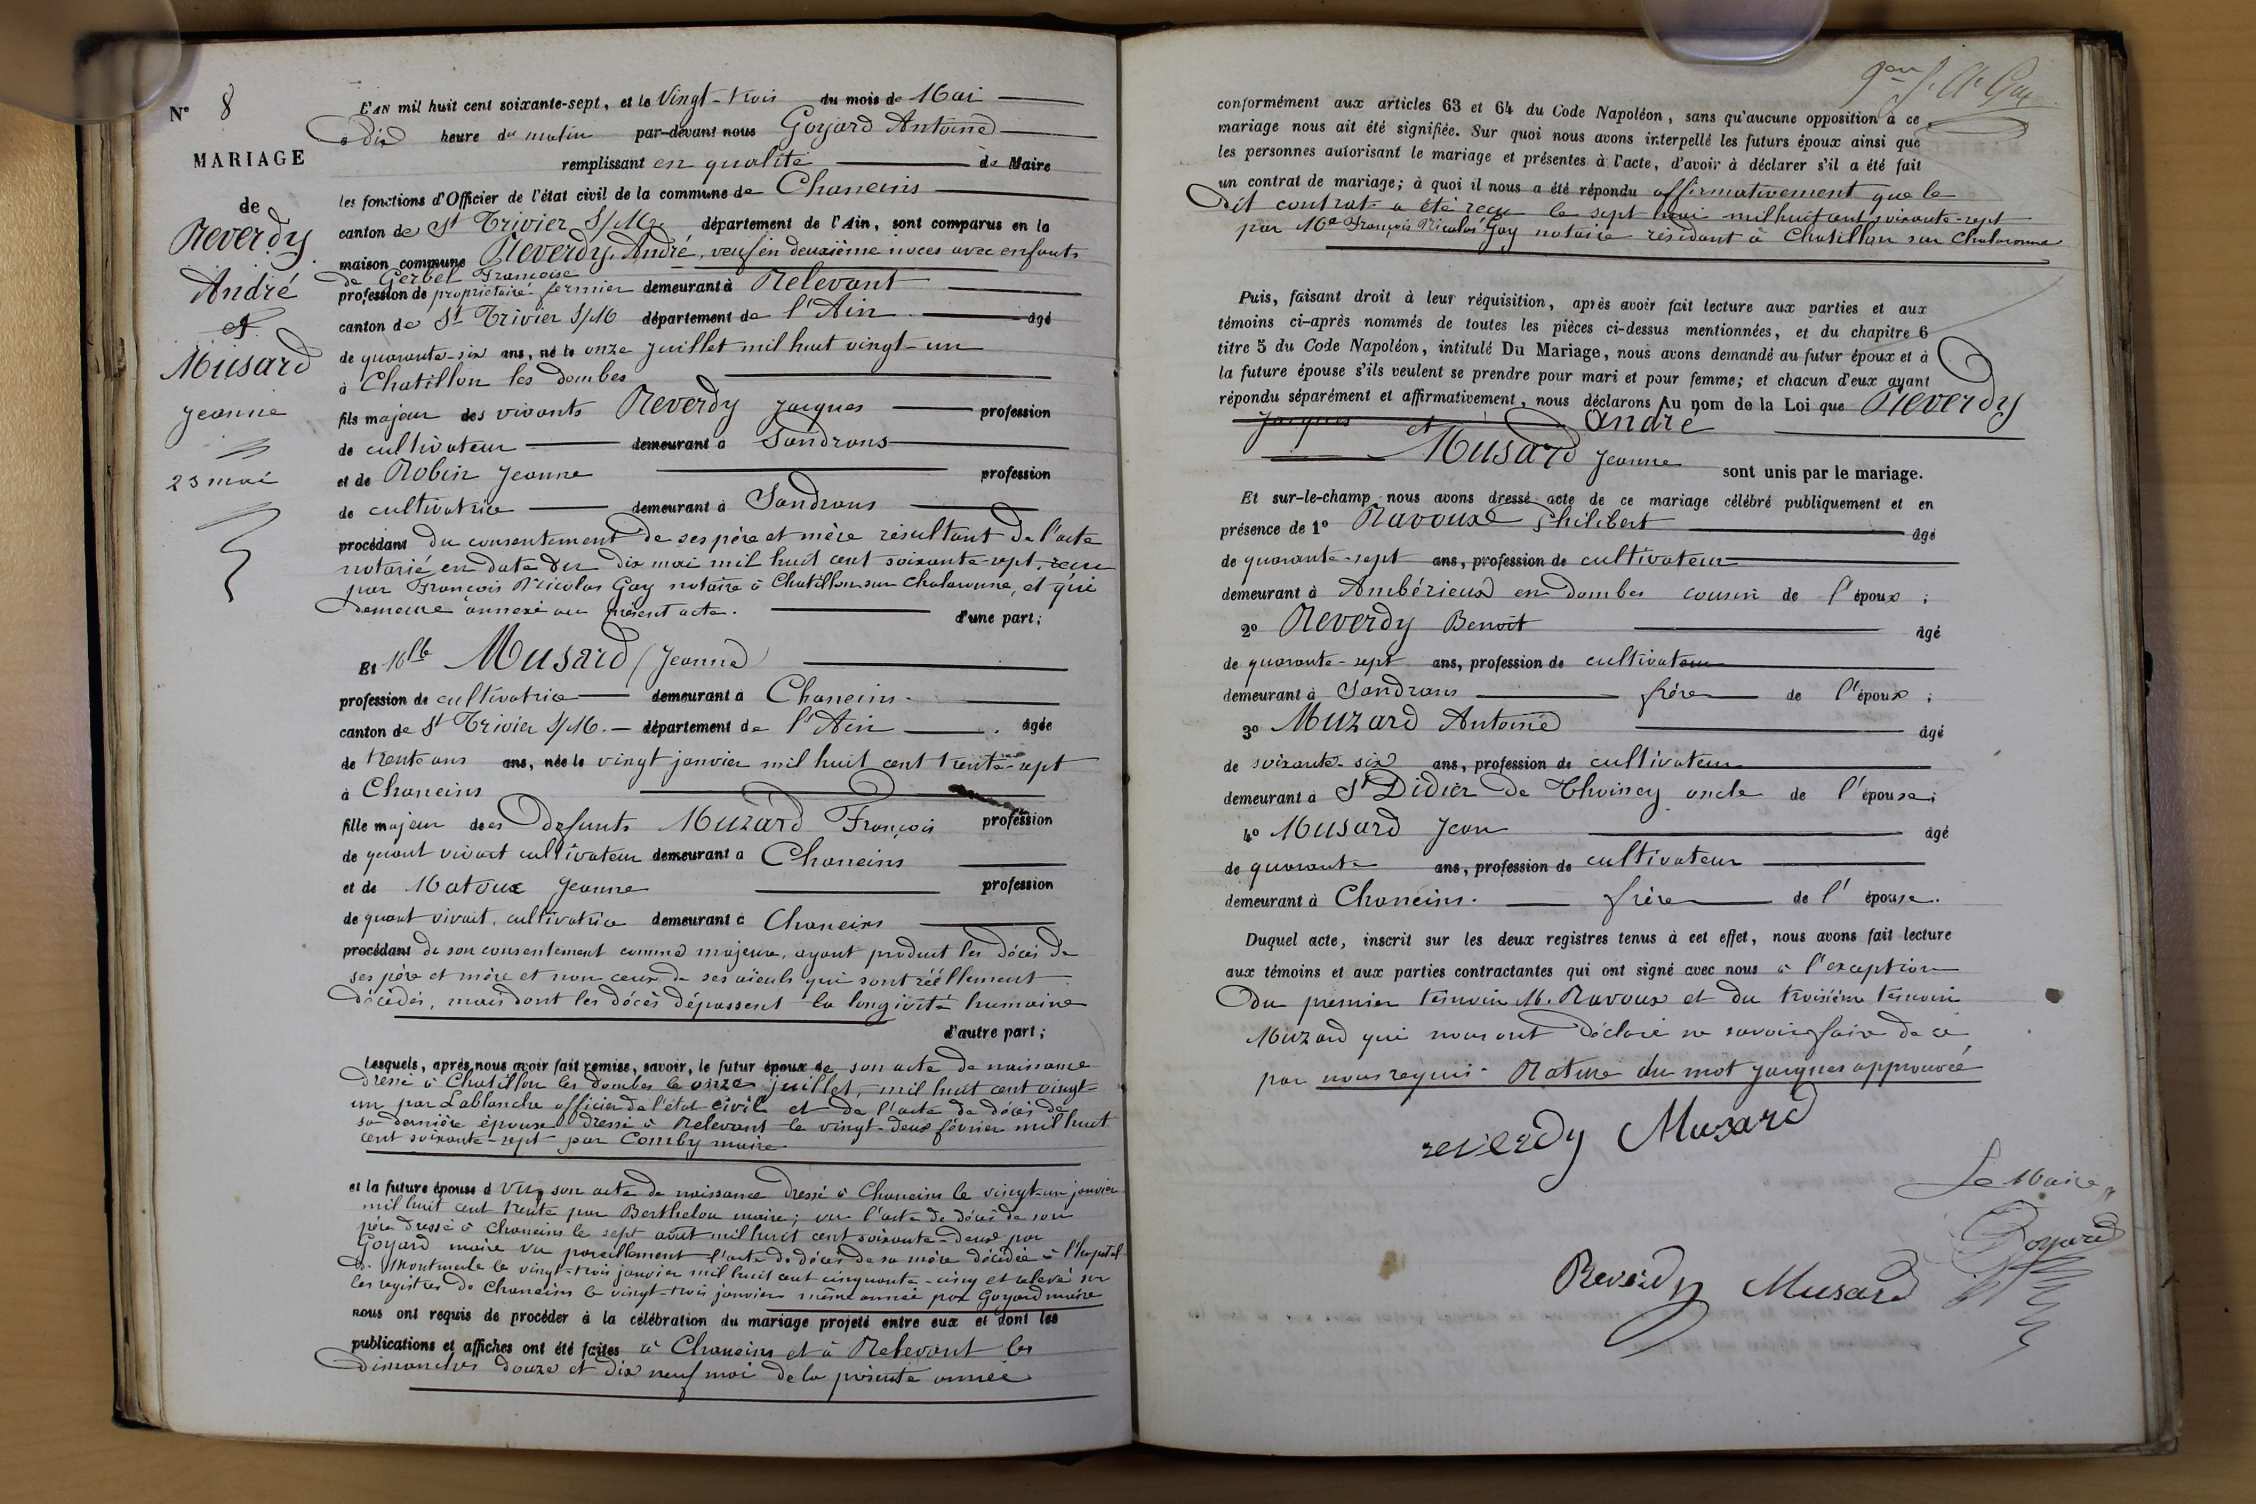 N° 8
MARIAGE
de
Reverdy
André
et
Musard
Jeanne
23 mai
L'AN mil huit cent soixante-sept, et le Vingt-trois du mois de Mai
à dix heure du matin par-devant nous Goyard Antoine
remplissant en qualité de Maire
les fonctions d'Officier de l'état civil de la commune de Chaneins
canton de St Trivier S/M département de l'Ain, sont comparus en la
maison commune Reverdy André, veuf en deuxième noces avec enfants
de Gerbel Françoise
profession de propriétaire fermier demeurant à Relevant
canton de St Trivier S/M département de l'Ain âgé
de quarante-six ans, né le onze juillet mil huit vingt-un
à Chatillon les dombes
fils majeur des vivants Reverdy Jacques profession
de cultivateur demeurant à Sandrans
et de Robin Jeanne profession
de cultivatrice demeurant à Sandrans
procédant du consentement de ses père et mère résultant de l'acte
notarié en date du dix mai mil huit cent soixante-sept, reçu
par François Nicolas Gay notaire à Chatillon sur Chalaronne, et qui
demeure annexé au présent acte. d'une part;
Et Mlle Musard Jeanne
profession de cultivatrice demeurant à Chaneins
canton de St Trivier S/M. département de l'Ain âgée
de trente ans ans, née le vingt janvier mil huit cent trente-sept
à Chaneins
fille majeur de es Defunts Muzard François profession
de quant vivait cultivateur demeurant à Chaneins
et de Matoux Jeanne profession
de quant vivait, cultivatrice demeurant à Chaneins
procédant de son consentement comme majeure, ayant produit les décès de
ses père et mère et non ceux de ses aïeuls qui sont réellement
décédés, mais dont les décès dépassent la longivité humaine
d'autre part;
Lesquels, après nous avoir fait remise, savoir, le futur époux de son acte de naissance
dressé à Chatillon les dombes le onze juillet, mil huit cent vingt-
un par Lablanche officier de l'état civil et de l'acte de décès de
sa dernière épouse dressé à Relevant le vingt-deux février mil huit
cent soixante-sept par Comby maire
et la future épouse d vu son acte de naissance dressé à Chaneins le vingt-un janvier
mil huit cent trente par Berthelon maire; vu l'acte de décès de son
père dressé à Chaneins le sept août mil huit cent soixante-deux par
Goyard maire vu pareillement l'acte de décès de sa mère décédée à l'hopital
de Montmerle le vingt-trois janvier mil huit cent cinquante-cinq et relevé sur
les registres de Chaneins le vingt-trois janvier même année par Goyard maire
nous ont requis de procéder à la célébration du mariage projeté entre eux et dont les
publications et affiches ont été faites à Chaneins et à Relevant les
dimanches douze et dix neuf mai de la présente année
conformément aux articles 63 et 64 du Code Napoléon, sans qu'aucune opposition à ce
mariage nous ait été signifiée. Sur quoi nous avons interpellé les futurs époux ainsi que
les personnes autorisant le mariage et présentes à l'acte, d'avoir à déclarer s'il a été fait
un contrat de mariage; à quoi il nous a été répondu affirmativement que le
dit contrat a été reçu le sept mai mil huit cent soixante-sept
par Me François Nicolas Gay notaire résidant à Chatillon sur Chalaronne
Puis, faisant droit à leur réquisition, après avoir fait lecture aux parties et aux
témoins ci-après nommés de toutes les pièces ci-dessus mentionnées, et du chapitre 6
titre 5 du Code Napoléon, intitulé Du Mariage, nous avons demandé au futur époux et à
la future épouse s'ils veulent se prendre pour mari et pour femme; et chacun d'eux ayant
répondu séparément et affirmativement, nous déclarons Au nom de la Loi que Reverdy
Jacques et André
Musard Jeanne sont unis par le mariage.
Et sur-le-champ nous avons dressé acte de ce mariage célébré publiquement et en
présence de 1° Ravoux Philibert âgé
de quarante-sept ans, profession de cultivateur
demeurant à Ambérieux en dombes cousin de l'époux;
2° Reverdy Benoît âgé
de quarante-sept ans, profession de cultivateur
demeurant à Sandrans frère de l'époux;
3° Muzard Antoine âgé
de soixante-six ans, profession de cultivateur
demeurant à St Didier de Thoissey oncle de l'épouse;
4° Musard Jean âgé
de quarante ans, profession de cultivateur
demeurant à Chaneins. frère de l'épouse.
Duquel acte, inscrit sur les deux registres tenus à cet effet, nous avons fait lecture
aux témoins et aux parties contractantes qui ont signé avec nous à l'exception
du premier témoin M. Ravoux et du troisième témoin
Muzard qui nous ont déclaré ne savoir faire de ce
par nous requis. Rature du mot Jacques approuvée
reverdy Musard
Le Maire
Goyard
Reverdy Musard